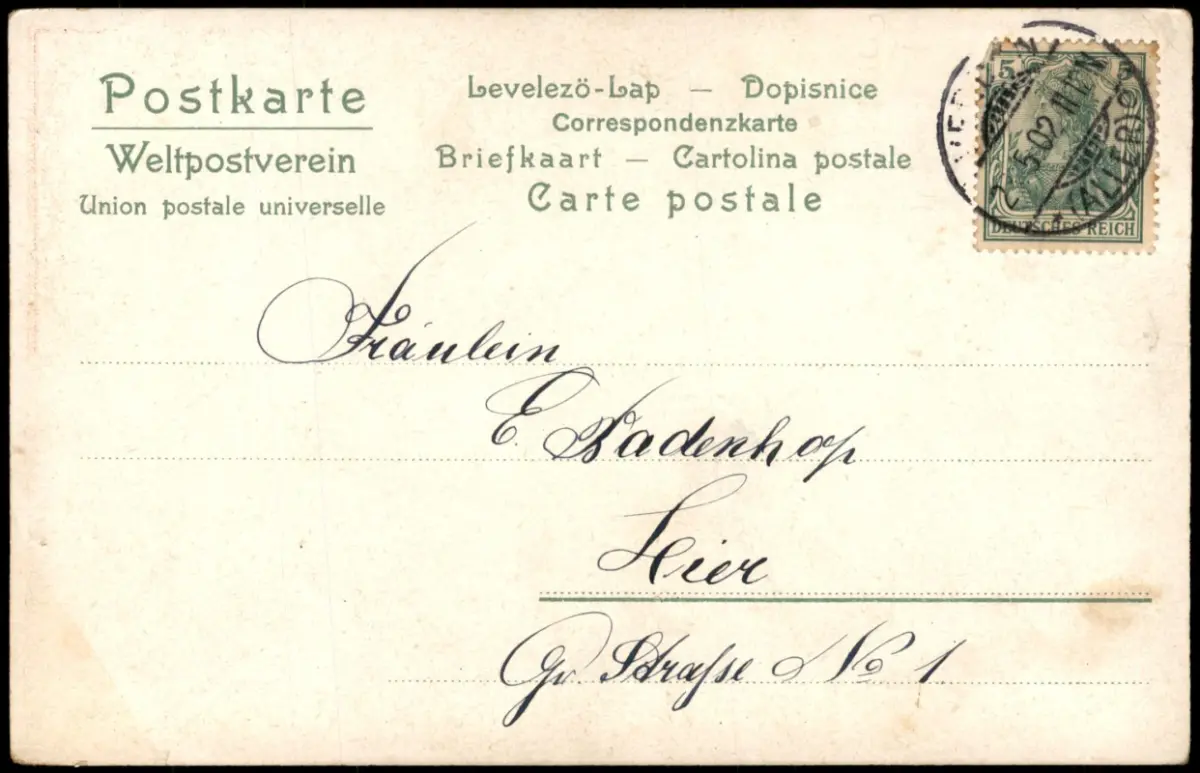 Postkarte
Weltpostverein
Union postale universelle
Levelezö-Lap — Dopisnice
Correspondenzkarte
Briefkaart — Cartolina postale
Carte postale
5 5
DEUTSCHES REICH
5.02. 11-12 N
(ALLER)
Fräulein
E. Badenhop
Hier
Gr. Straße No 1.